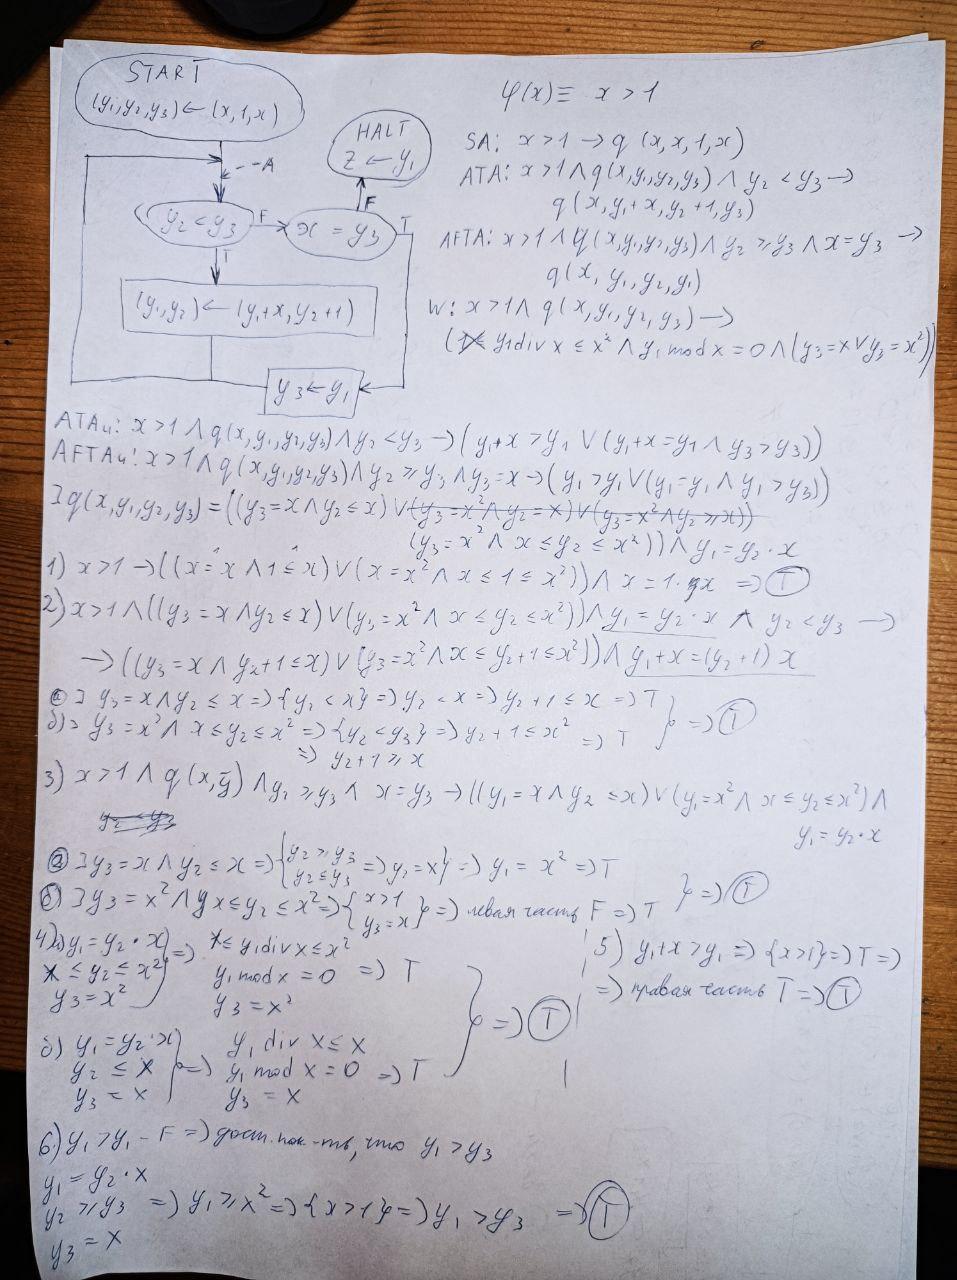 START
(y₁,y₂,y₃) ← (x,1,x)
A
y₂ < y₃
F
x = y₃
T
F
HALT
z ← y₁
T
(y₁,y₂) ← (y₁+x, y₂+1)
y₃ ← y₁
φ(x) ≡ x > 1
SA: x>1 → q (x, x, 1, x)
ATA: x>1 ∧ q(x,y₁,y₂,y₃) ∧ y₂ < y₃ →
q(x, y₁+x, y₂+1, y₃)
AFTA: x>1 ∧ q(x,y₁,y₂,y₃) ∧ y₂ ≥ y₃ ∧ x=y₃ →
q(x, y₁, y₂, y₁)
W: x>1 ∧ q(x, y₁, y₂, y₃) →
( y₁ div x ≤ x² ∧ y₁ mod x = 0 ∧ (y₃=x ∨ y₃ = x²))
ATAч: x>1 ∧ q(x,y₁,y₂,y₃) ∧ y₂ < y₃ → (y₁+x > y₁ ∨ (y₁+x=y₁ ∧ y₃>y₃))
AFTAч: x>1 ∧ q(x,y₁,y₂,y₃) ∧ y₂ ≥ y₃ ∧ y₃=x → (y₁>y₁ ∨ (y₁=y₁ ∧ y₁>y₃))
∃ q(x,y₁,y₂,y₃) = ((y₃=x ∧ y₂ ≤ x) ∨ (y₃=x² ∧ y₂=x) ∨ (y₃=x² ∧ y₂ ≥ x))
(y₃ = x² ∧ x ≤ y₂ ≤ x²)) ∧ y₁ = y₂·x
1) x>1 → ((x = x ∧ 1 ≤ x) ∨ (x = x² ∧ x ≤ 1 ≤ x²)) ∧ x = 1·x => T
2) x>1 ∧ ((y₃ = x ∧ y₂ ≤ x) ∨ (y₃ = x² ∧ x ≤ y₂ ≤ x²)) ∧ y₁ = y₂·x ∧ y₂ < y₃ →
→ ((y₃ = x ∧ y₂+1 ≤ x) ∨ (y₃ = x² ∧ x ≤ y₂+1 ≤ x²)) ∧ y₁+x = (y₂+1) x
а) ∃ y₃ = x ∧ y₂ ≤ x => {y₂ < x} => y₂ < x => y₂+1 ≤ x => T
б) ∃ y₃ = x² ∧ x ≤ y₂ ≤ x² => {y₂ < y₃} => y₂+1 ≤ x² => T
=> y₂+1 ≥ x
} => T
3) x>1 ∧ q(x,ȳ) ∧ y₂ ≥ y₃ ∧ x = y₃ → ((y₁ = x ∧ y₂ ≤ x) ∨ (y₁ = x² ∧ x ≤ y₂ ≤ x²) ∧
y₁ = y₂·x
а) ∃ y₃ = x ∧ y₂ ≤ x => {y₂ ≥ y₃ y₂ ≤ y₃ => y₂=x} => y₁ = x² => T
б) ∃ y₃ = x² ∧ x ≤ y₂ ≤ x² => {x>1 y₃=x} => левая часть F => T
} => T
4) а) y₁ = y₂·x
x ≤ y₂ ≤ x²
y₃ = x²
=>
x ≤ y₁ div x ≤ x²
y₁ mod x = 0 => T
y₃ = x²
б) y₁ = y₂·x
y₂ ≤ x
y₃ = x
=>
y₁ div x ≤ x
y₁ mod x = 0 => T
y₃ = x
} => T
5) y₁+x > y₁ => {x>1} => T =>
=> правая часть T => T
6) y₁ > y₁ – F => дост. пок-ть, что y₁ > y₃
y₁ = y₂·x
y₂ ≥ y₃ => y₁ ≥ x² => {x>1} => y₁ > y₃ => T
y₃ = x